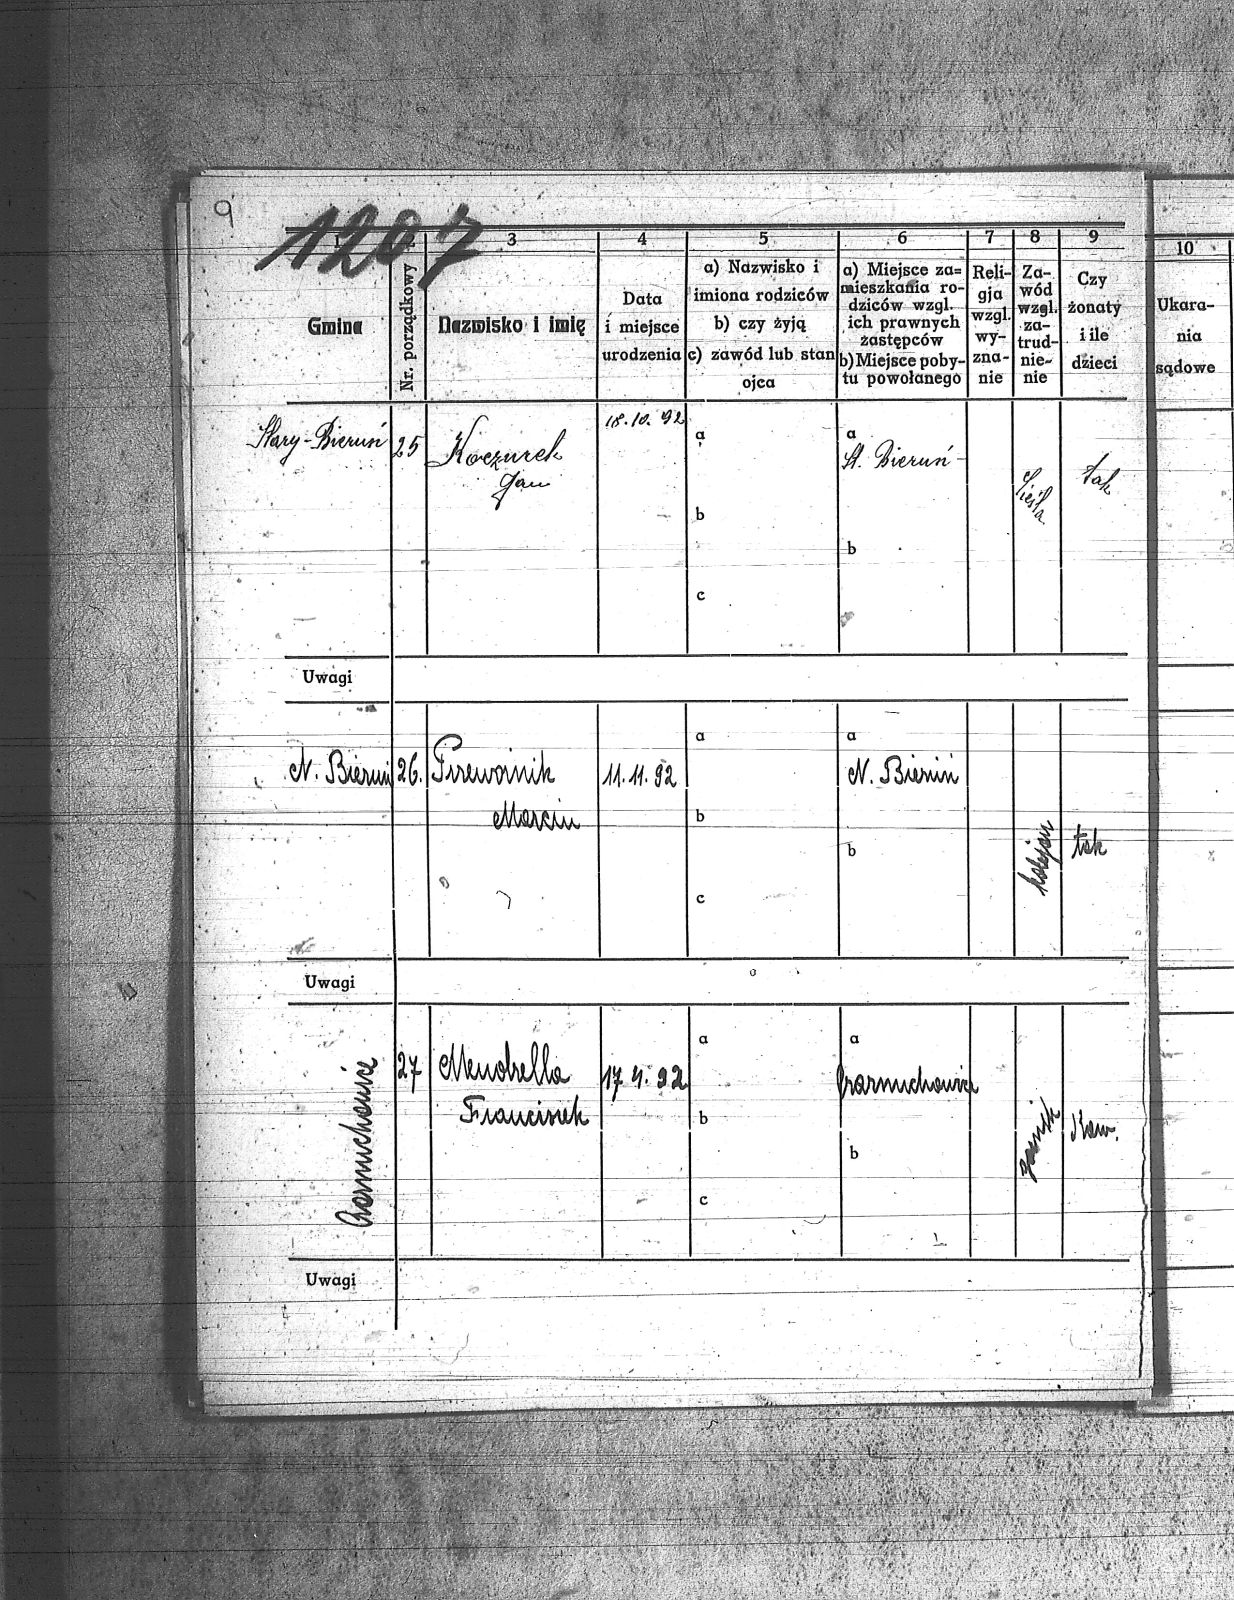 9
1207
3 4 5 6 7 8 9 10
Gmina
Nr. porządkowy
Nazwisko i imię
Data
i miejsce
urodzenia
a) Nazwisko i
imiona rodziców
b) czy żyją
c) zawód lub stan
ojca
a) Miejsce za=
mieszkania ro-
dziców wzgl.
ich prawnych
zastępców
b) Miejsce poby-
tu powołanego
Reli-
gja
wzgl.
wy-
zna-
nie
Za-
wód
wzgl.
za-
trud-
nie-
nie
Czy
żonaty
i ile
dzieci
Ukara-
nia
sądowe
Stary-Bieruń
25
Koczurek
Jan
18.10.92
a
b
c
a
St. Bieruń
b
Cieśla
tak
Uwagi
N. Bieruń
26.
Marcin
11.11.92
a
b
c
a
N. Bieruń
b
kolejarz
tak
Uwagi
27
Mendrella
Franciszek
17.4.92
a
b
c
a
b
Kaw.
Uwagi